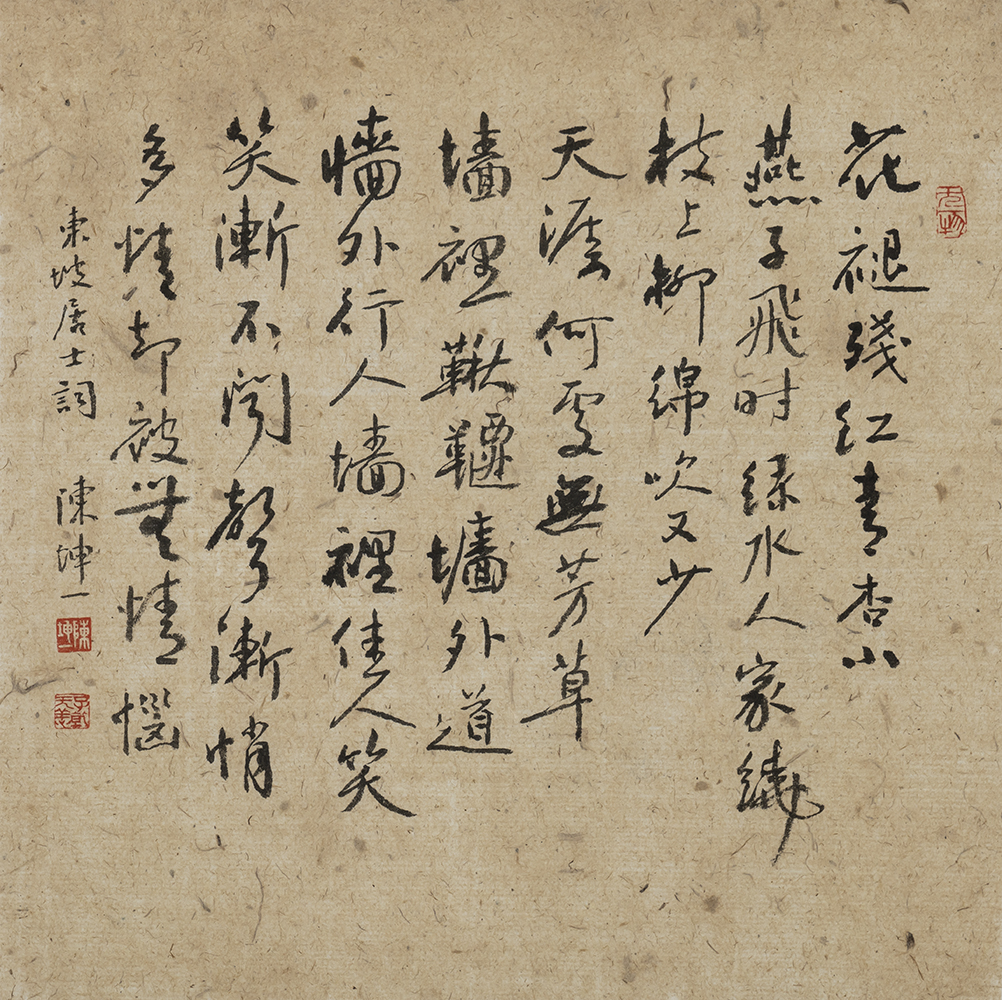 花褪殘紅青杏小
燕子飛時綠水人家繞
枝上柳綿吹又少
天涯何處無芳草
墻裡鞦韆墻外道
墻外行人墻裡佳人笑
笑漸不聞聲漸悄
多情卻被無情惱
東坡居士詞 陳坤一
陳坤一